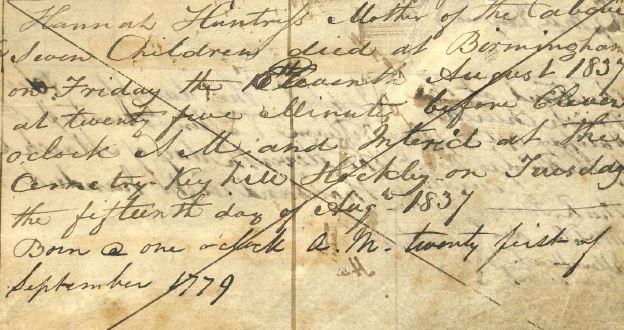 Hannah Huntress Mother of the above
Seven Children died at Birmingham
on Friday the Eleventh August 1837
at twenty five Minutes before Eleven
oclock A M and Interd at the
Cemetry Key hill Hockley on Tuesday
the fifteenth day of Augst 1837
Born @ one o'clock A.M. twenty first of
September 1779